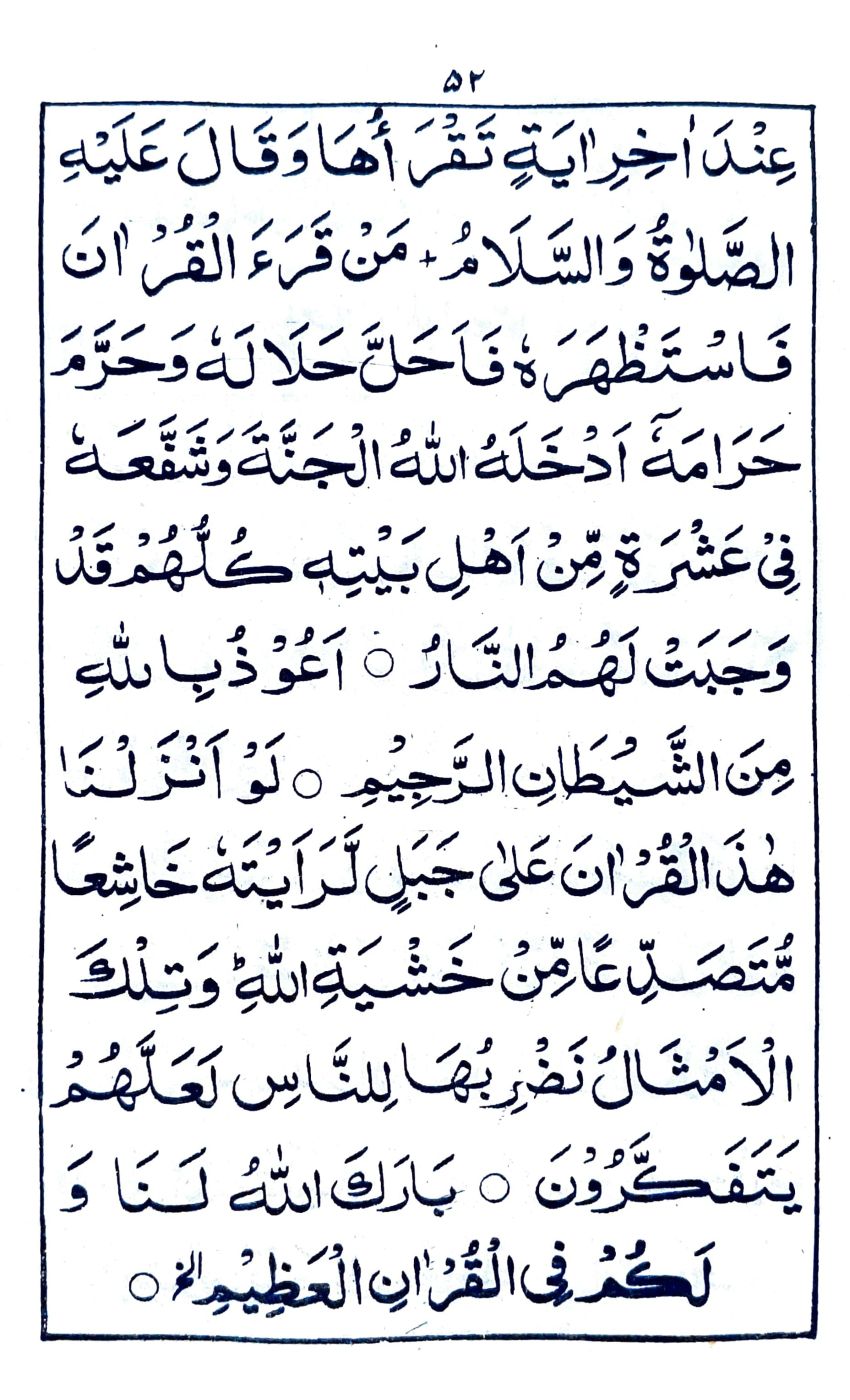 ۵۲
عِنْدَ اٰخِرِ اٰيَةٍ تَقْرَأُهَا وَقَالَ عَلَيْهِ
الصَّلٰوةُ وَالسَّلَامُ + مَنْ قَرَءَ الْقُرْاٰنَ
فَاسْتَظْهَرَهٗ فَاَحَلَّ حَلَالَهٗ وَحَرَّمَ
حَرَامَهٗٓ اَدْخَلَهُ اللهُ الْجَنَّةَ وَشَفَّعَهٗ
فِىْ عَشْرَةٍ مِّنْ اَهْلِ بَيْتِهٖ كُلُّهُمْ قَدْ
وَجَبَتْ لَهُمُ النَّارُ ○ اَعُوْذُ بِاللهِ
مِنَ الشَّيْطَانِ الرَّجِيْمِ ○ لَوْ اَنْزَلْنَا
هٰذَا الْقُرْاٰنَ عَلٰى جَبَلٍ لَّرَاَيْتَهٗ خَاشِعًا
مُّتَصَدِّعًا مِّنْ خَشْيَةِ اللهِ ؕ وَتِلْكَ
الْاَمْثَالُ نَضْرِبُهَا لِلنَّاسِ لَعَلَّهُمْ
يَتَفَكَّرُوْنَ ○ بَارَكَ اللهُ لَنَا وَ
لَكُمْ فِى الْقُرْاٰنِ الْعَظِيْمِ الخ ○